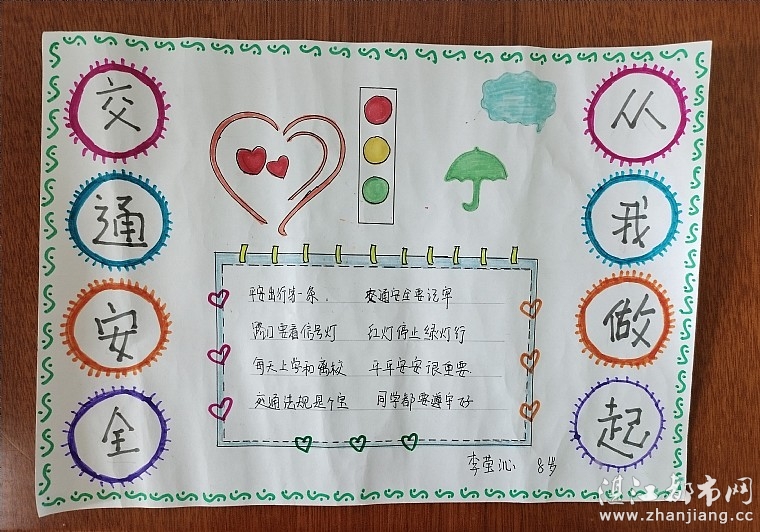 交通安全
从我做起
平安出行第一条, 交通安全要记牢
路口要看信号灯 红灯停止绿灯行
每天上学和离校 平平安安很重要
交通法规是个宝 同学都要遵守好
李莹沁 8岁
湛江都市网
www.zhanjiang.cc